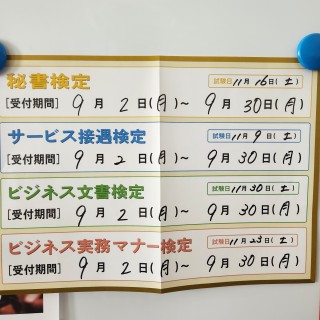 秘書検定 試験日 11月 16日(土)
[受付期間] 9月 2日(月)~ 9月 30日(月)
サービス接遇検定 試験日 11月 9日(土)
[受付期間] 9月 2日(月)~ 9月 30日(月)
ビジネス文書検定 試験日 11月 30日(土)
[受付期間] 9月 2日(月)~ 9月 30日(月)
ビジネス実務マナー検定 試験日 11月 23日(土)
[受付期間] 9月 2日(月)~ 9月 30日(月)